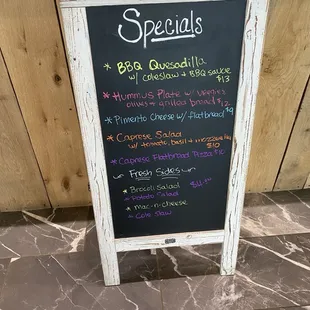 Specials
* BBQ Quesadilla
w/ coleslaw + BBQ sauce
$13
* Hummus Plate w/ veggies
olives + grilled bread $12
* Pimento Cheese w/ flatbread $9
* Caprese Salad
w/ tomato, basil + mozzarella
$10
* Caprese Flatbread Pizza $10
Fresh Sides
* Brocoli Salad
* Potato Salad
* mac-n-cheese
* Cole Slaw